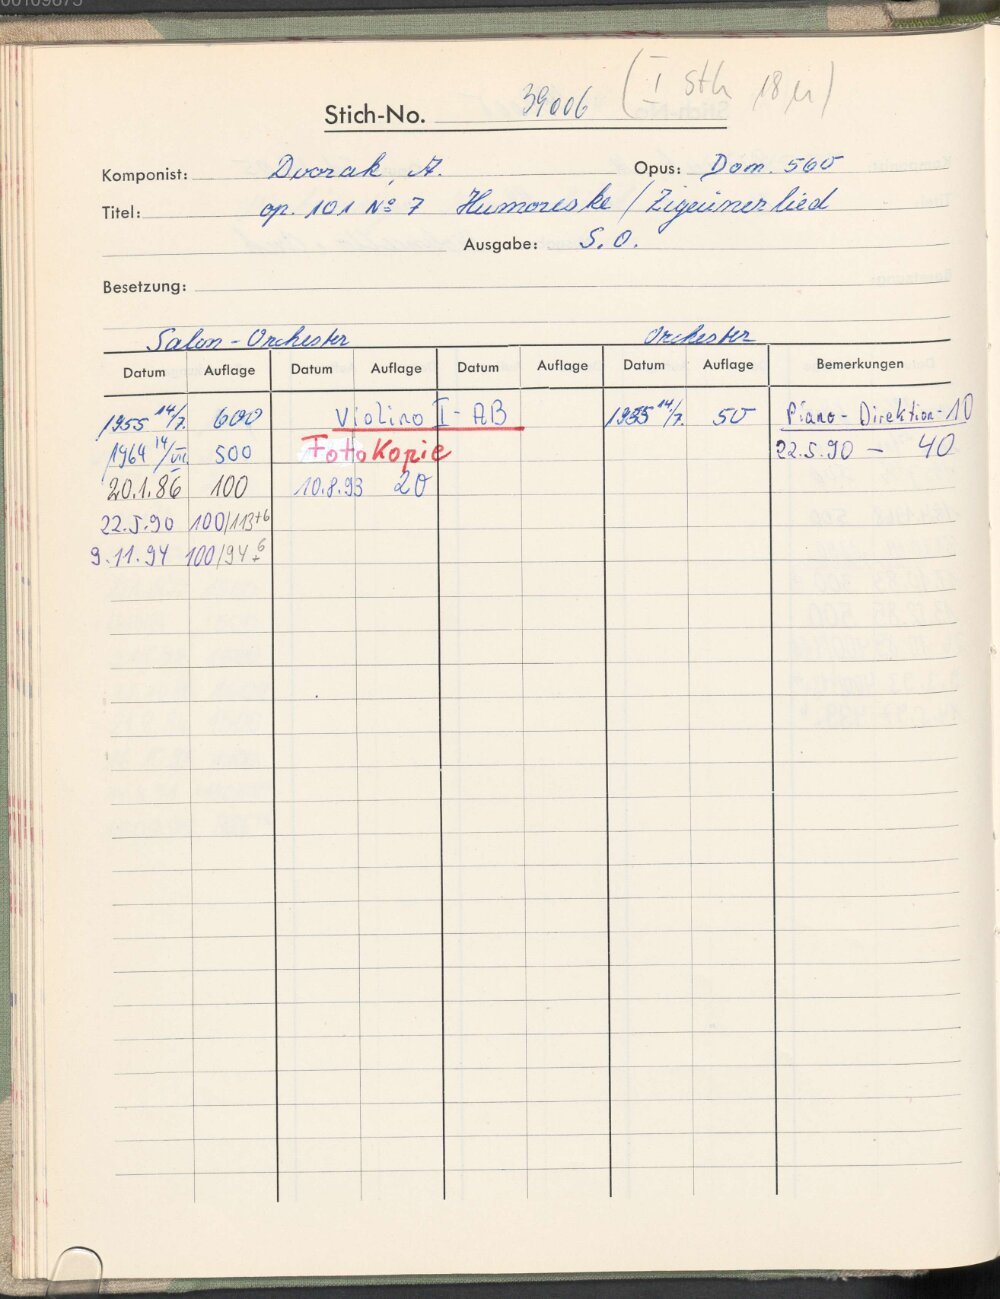 Stich-No. 39006 (I Sth 18 M)
Komponist: Dvorak, A. Opus: Dom. 560
Titel: op. 101 No 7 Humoreske / Zigeunerlied
Ausgabe: S.O.
Besetzung:
Salon-Orchester Orchester
Datum Auflage Datum Auflage Datum Auflage Datum Auflage Bemerkungen
1955 14/7. 600 Violino I-AB 1955 14/7. 50 Piano-Direktion-10
1964 14/VII. 500 FottoKopie 22.5.90 – 40
20.1.86 100 10.8.93 20
22.5.90 100/113+6
9.11.94 100/94+6